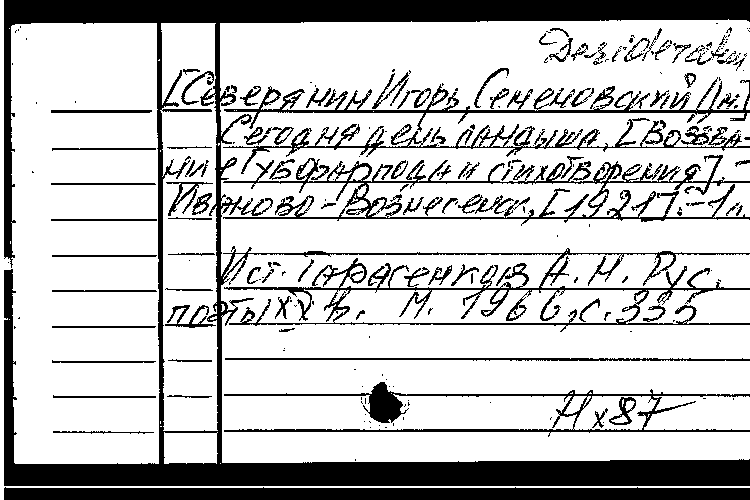 Desiderata
[Северянин Игорь, Семеновский Дм.]
Сегодня день ландыша. [Воззва-
ние Губфарподи и стихотворения]. –
Иваново-Вознесенск, [1921]. – 1 л.
Ист. Тарасенков А. Н. Рус.
поэты XX в. М. 1966, с. 335
Нх87